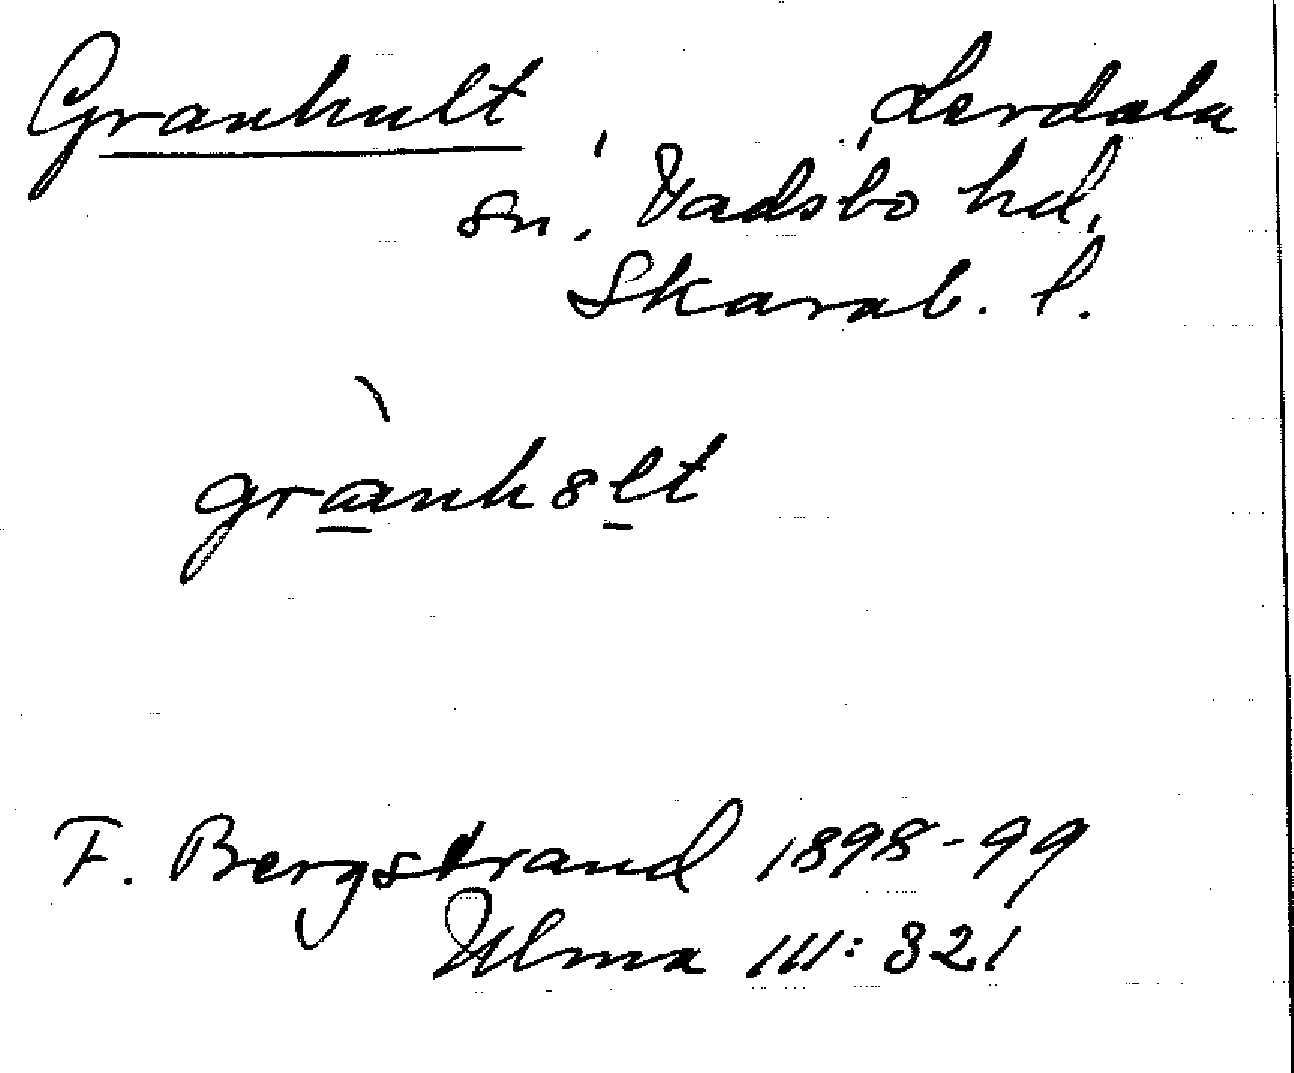 Granhult, Lerdala
sn, Vadsbo hd,
Skarab. l.
grànhȣlt
F. Bergstrand 1898-99
Ulma III: 321